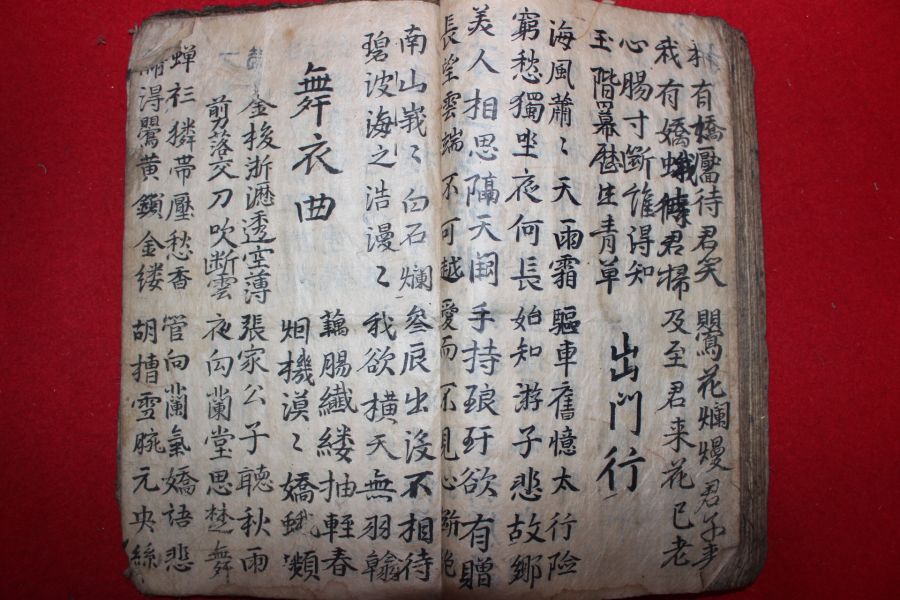 有嬌靨待君笑 鶯花爛熳君不来
我有嬌蛾待君掃 及至君来花已老
心腸寸斷誰得知
玉階冪歷生青草
出門行
海風蕭〻天雨霜 驅車舊憶太行險
窮愁獨坐夜何長 始知游子悲故鄉
美人相思隔天闕 手持琅玕欲有贈
長望雲端不可越 愛而不見心斷絶
南山峩〻白石爛 參辰出没不相待
碧波海之浩漫〻 我欲横天無羽翰
舞衣曲
藕腸纖縷抽輕春
烟機漠〻嬌蛾嚬
金梭淅瀝透空薄 張家公子聽秋雨
剪落交刀吹断雲 夜向蘭堂思楚舞
蟬衫麟帶壓愁香 管向蘭氣嬌語悲
得鶯黄鎖金縷 胡槽雪腕元央絲